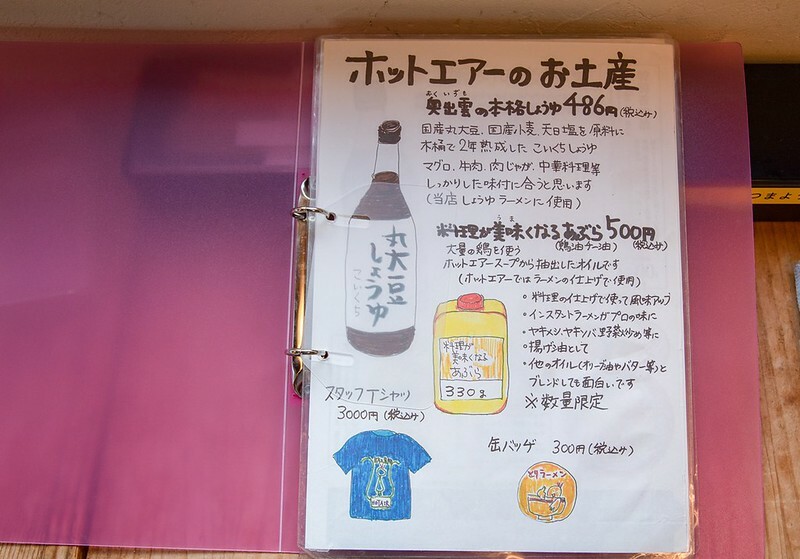 ホットエアーのお土産
おくいずも
奥出雲の本格しょうゆ 486円(税込み)
国産丸大豆、国産小麦、天日塩を原料に
木桶で2年熟成した こいくちしょうゆ
マグロ、牛肉、肉じゃが、中華料理等
しっかりした味付に合うと思います
(当店 しょうゆラーメンに使用)
丸大豆
しょうゆ
こいくち
うま
料理が美味くなるあぶら 500円
(鶏油チー油) (税込み)
大量の鶏を使う
ホットエアースープから抽出したオイルです
(ホットエアーではラーメンの仕上げで使用)
・料理の仕上げで使って風味アップ
・インスタントラーメンがプロの味に
・ヤキメシ、ヤキソバ、野菜炒め等に
・揚げ油として
・他のオイル(オリーブ油やバター等)と
ブレンドしても面白いです
※数量限定
料理が
美味くなる
あぶら
330g
スタッフTシャツ
3000円(税込み)
缶バッヂ 300円(税込み)
とりラーメン
つまよう